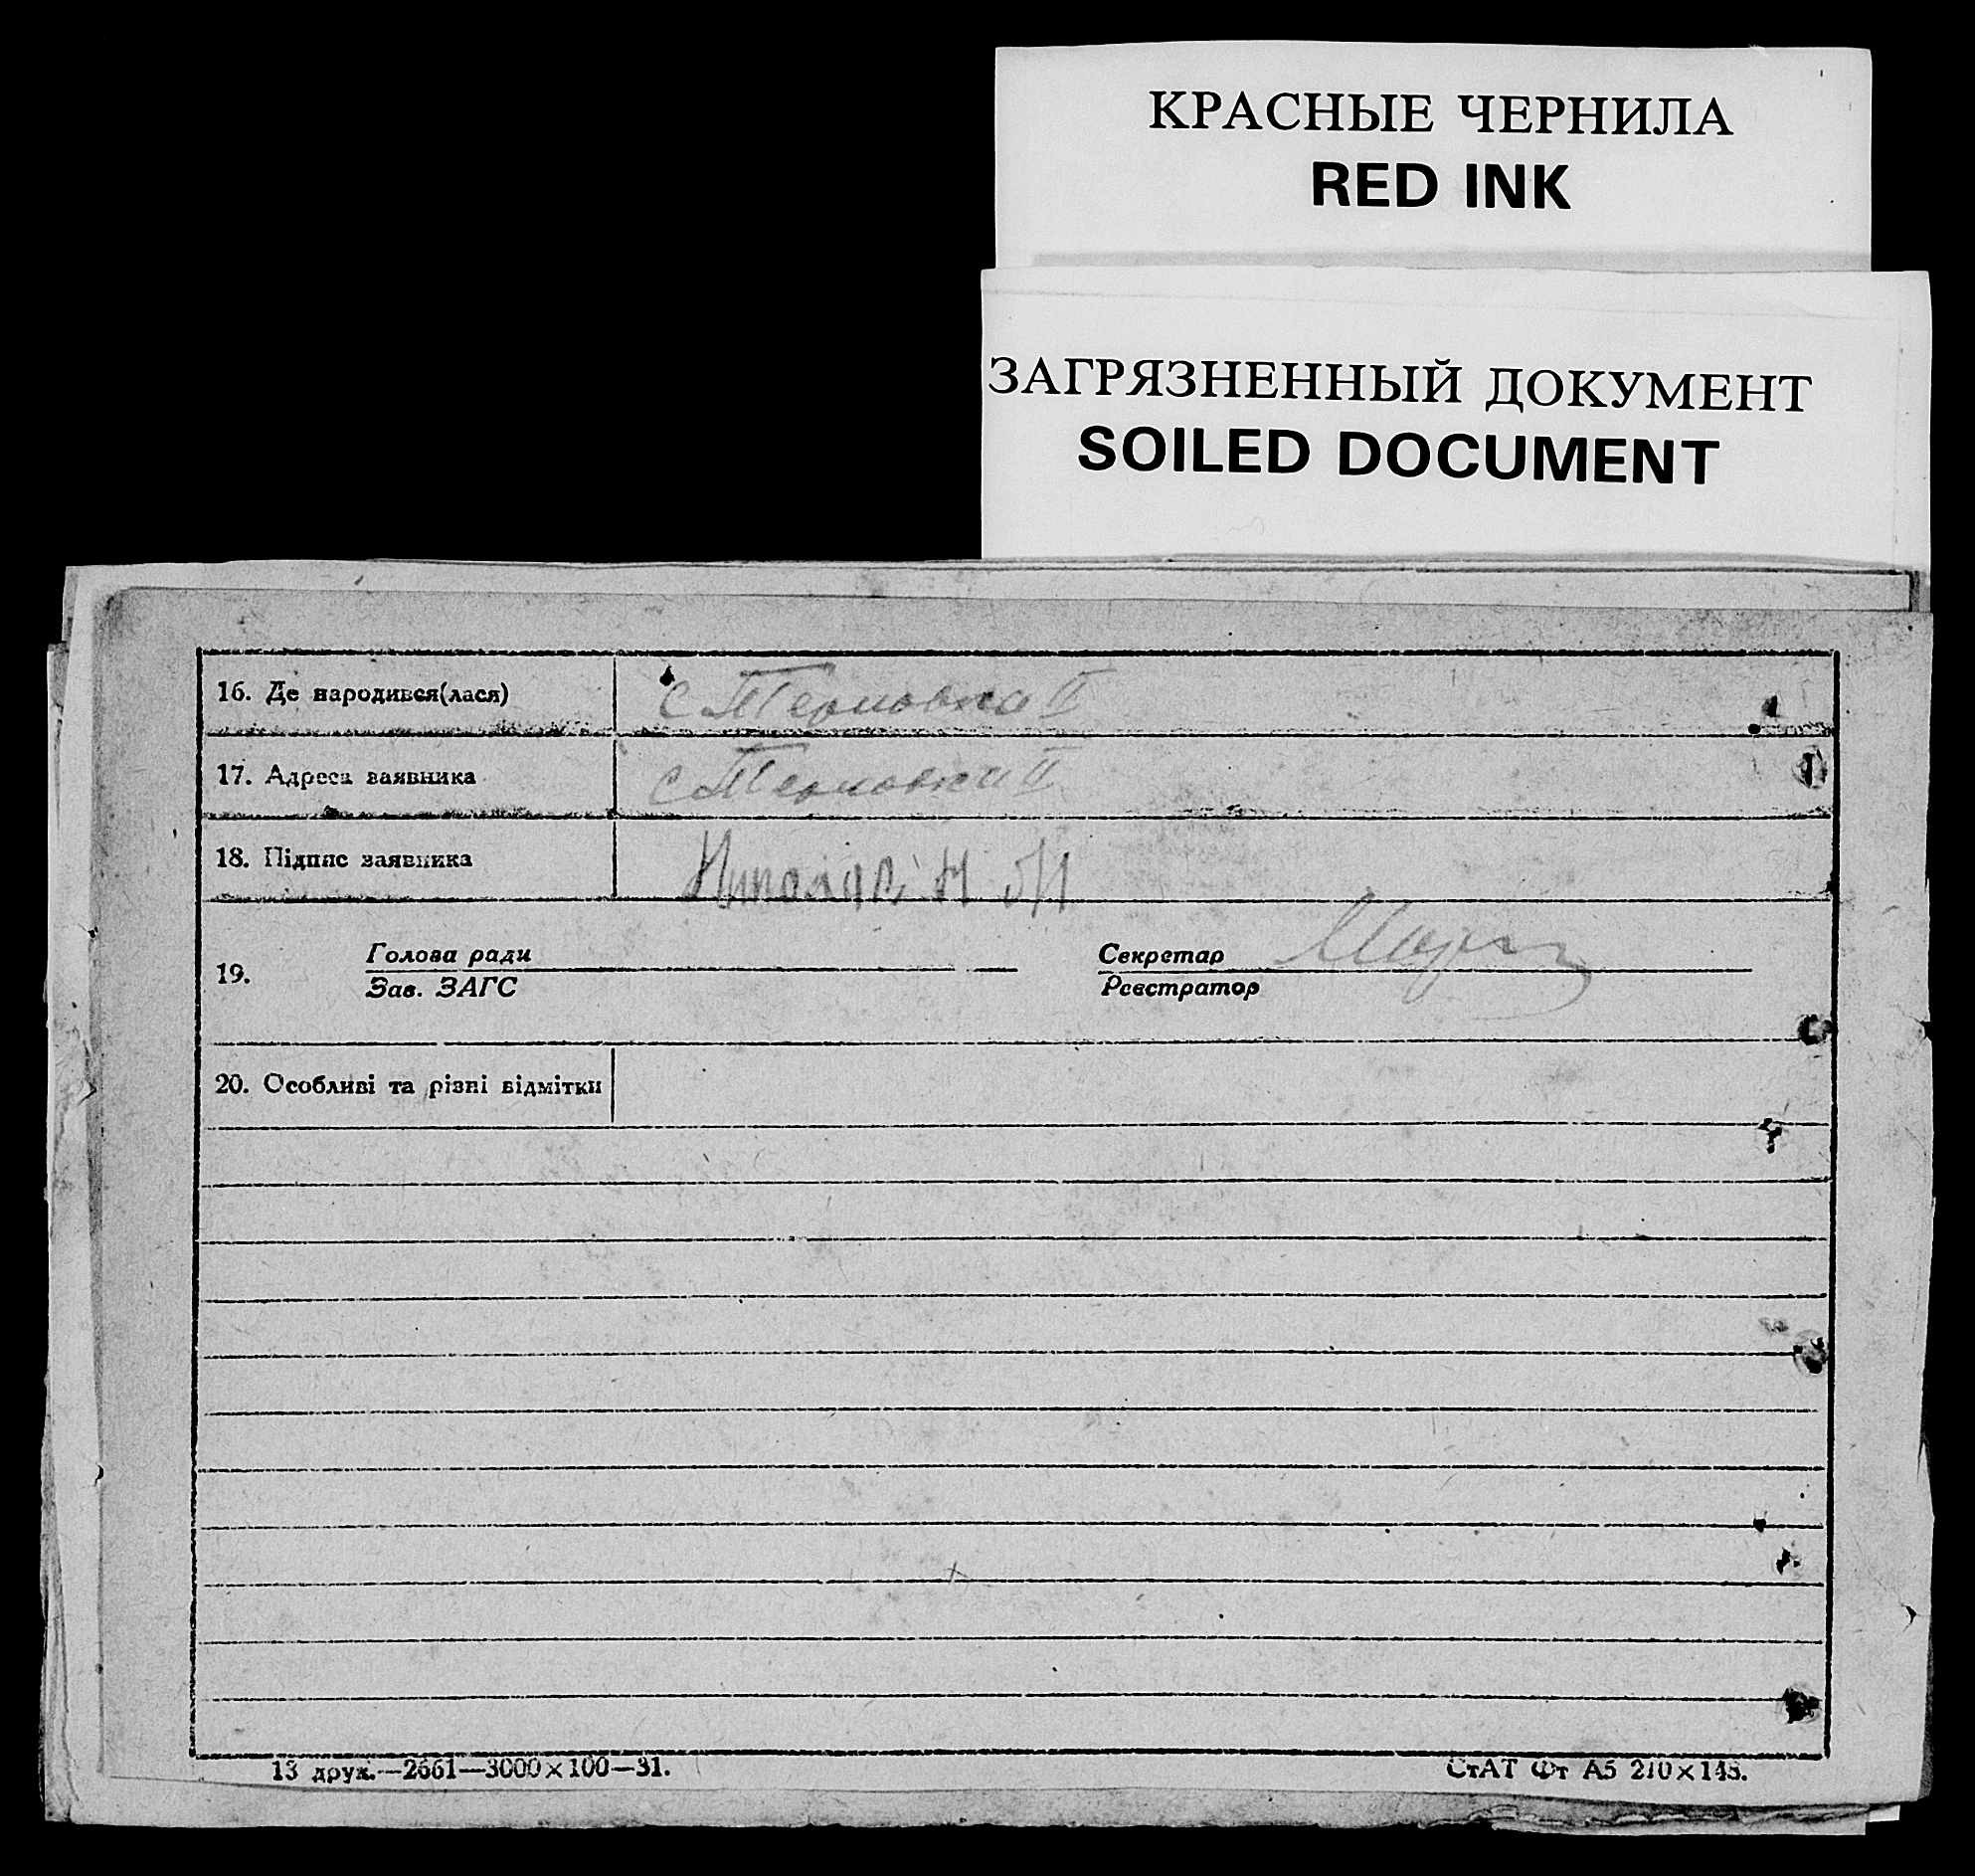 КРАСНЫЕ ЧЕРНИЛА
RED INK
ЗАГРЯЗНЕННЫЙ ДОКУМЕНТ
SOILED DOCUMENT
16. Де народився(лася) с Терновка II
17. Адреса заявника с Терновка II
18. Підпис заявника
19. Голова ради Секретар
Зав. ЗАГС Реєстратор
20. Особливі та різні відмітки
13 друк.—2661—3000×100—31. СтАТ Фт А5 210×148.